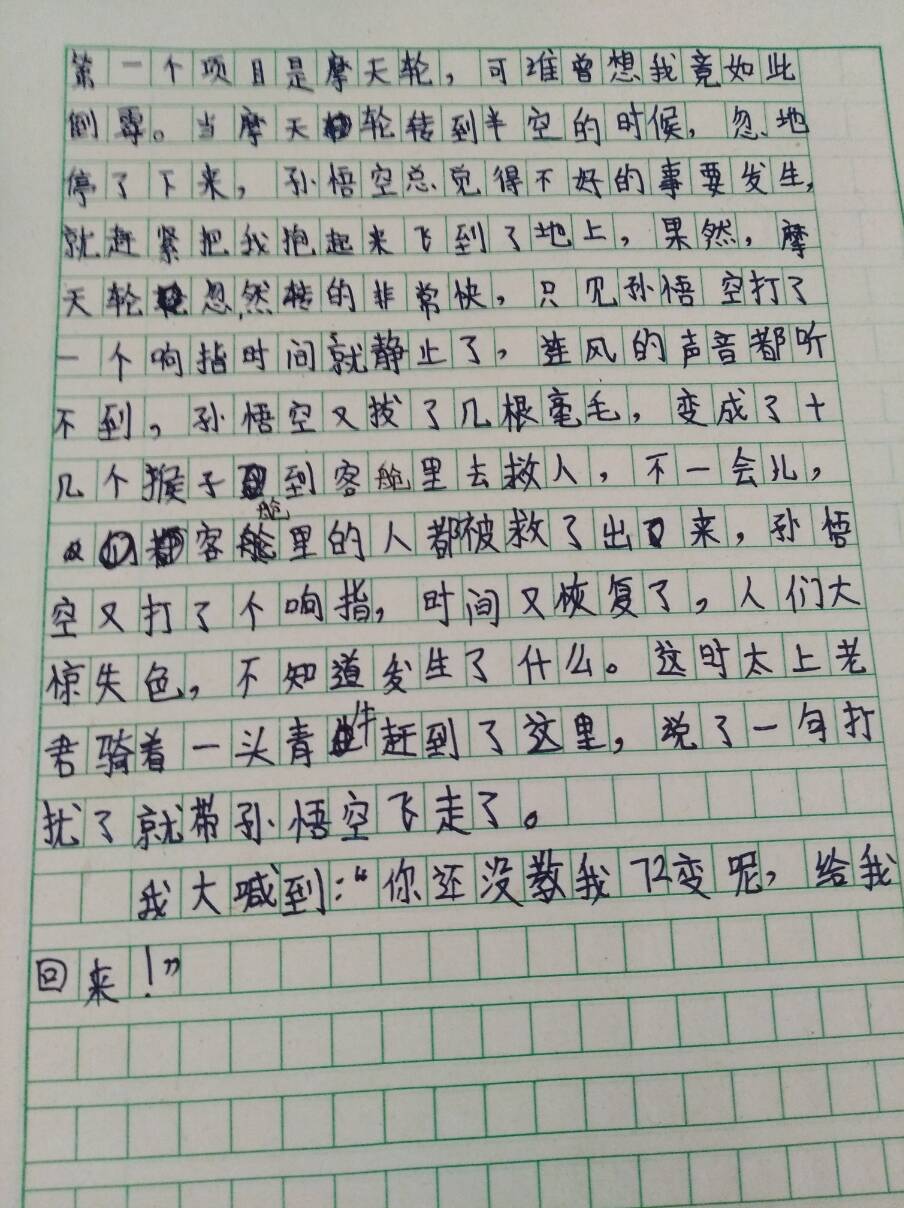 第一个项目是摩天轮，可谁曾想我竟如此
倒霉。当摩天轮转到半空的时候，忽地
停了下来，孙悟空总觉得不好的事要发生，
就赶紧把我抱起来飞到了地上，果然，摩
天轮忽然转的非常快，只见孙悟空打了
一个响指时间就静止了，连风的声音都听
不到，孙悟空又拔了几根毫毛，变成了十
几个猴子到客舱里去救人，不一会儿，
客舱里的人都被救了出来，孙悟
空又打了个响指，时间又恢复了，人们大
惊失色，不知道发生了什么。这时太上老
君骑着一头青牛赶到了这里，说了一句打
扰了就带孙悟空飞走了。
我大喊到：“你还没教我72变呢，给我
回来！”